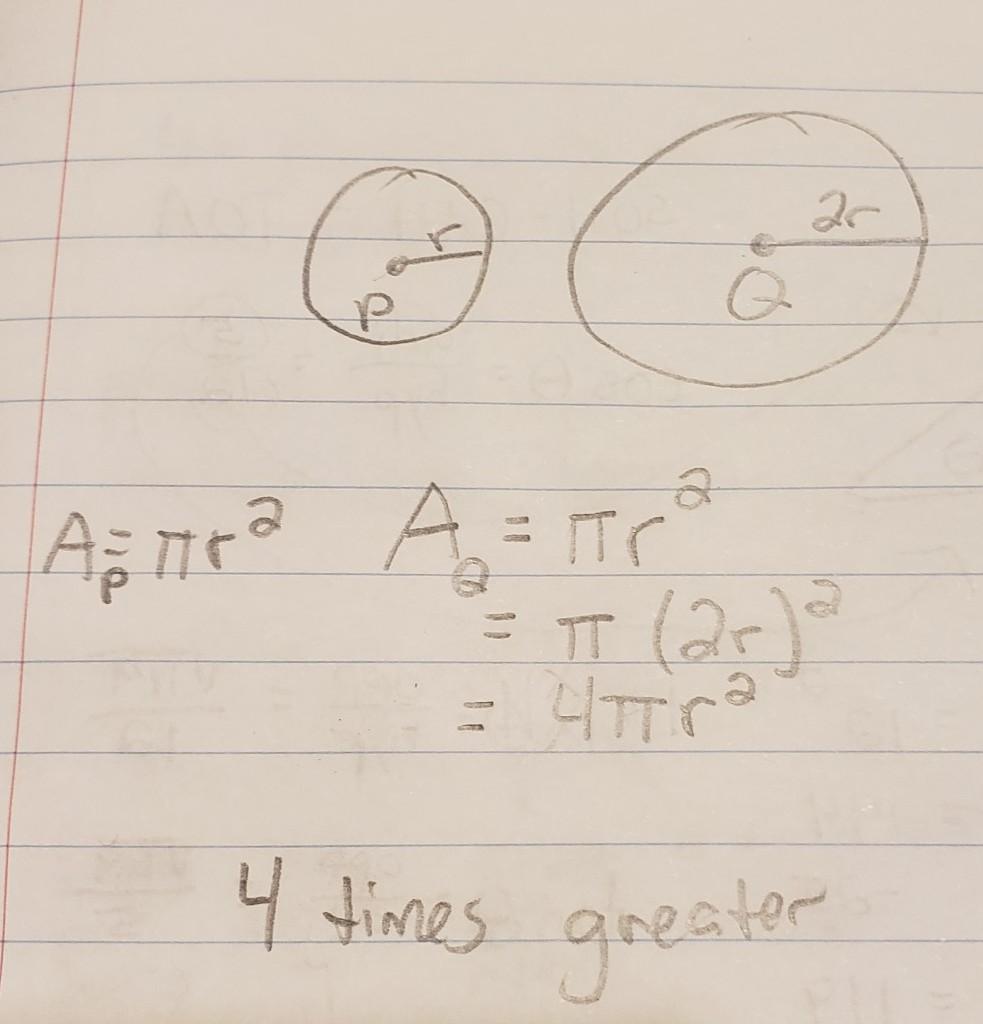 r
P
2r
Q
A_P = πr² A_Q = πr²
= π (2r)²
= 4πr²
4 times greater